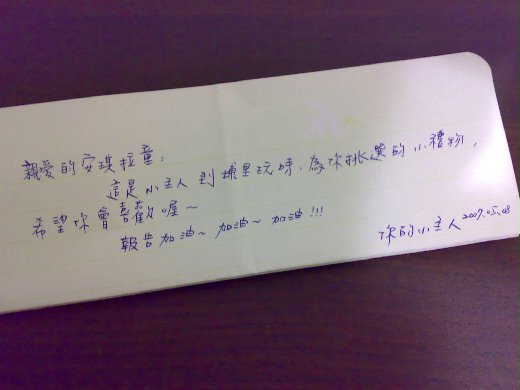 親愛的安琪拉童：
這是小主人到埔里玩時，為你挑選的小禮物，
希望你會喜歡喔～
報告加油～加油～加油!!!
你的小主人2009.05.08